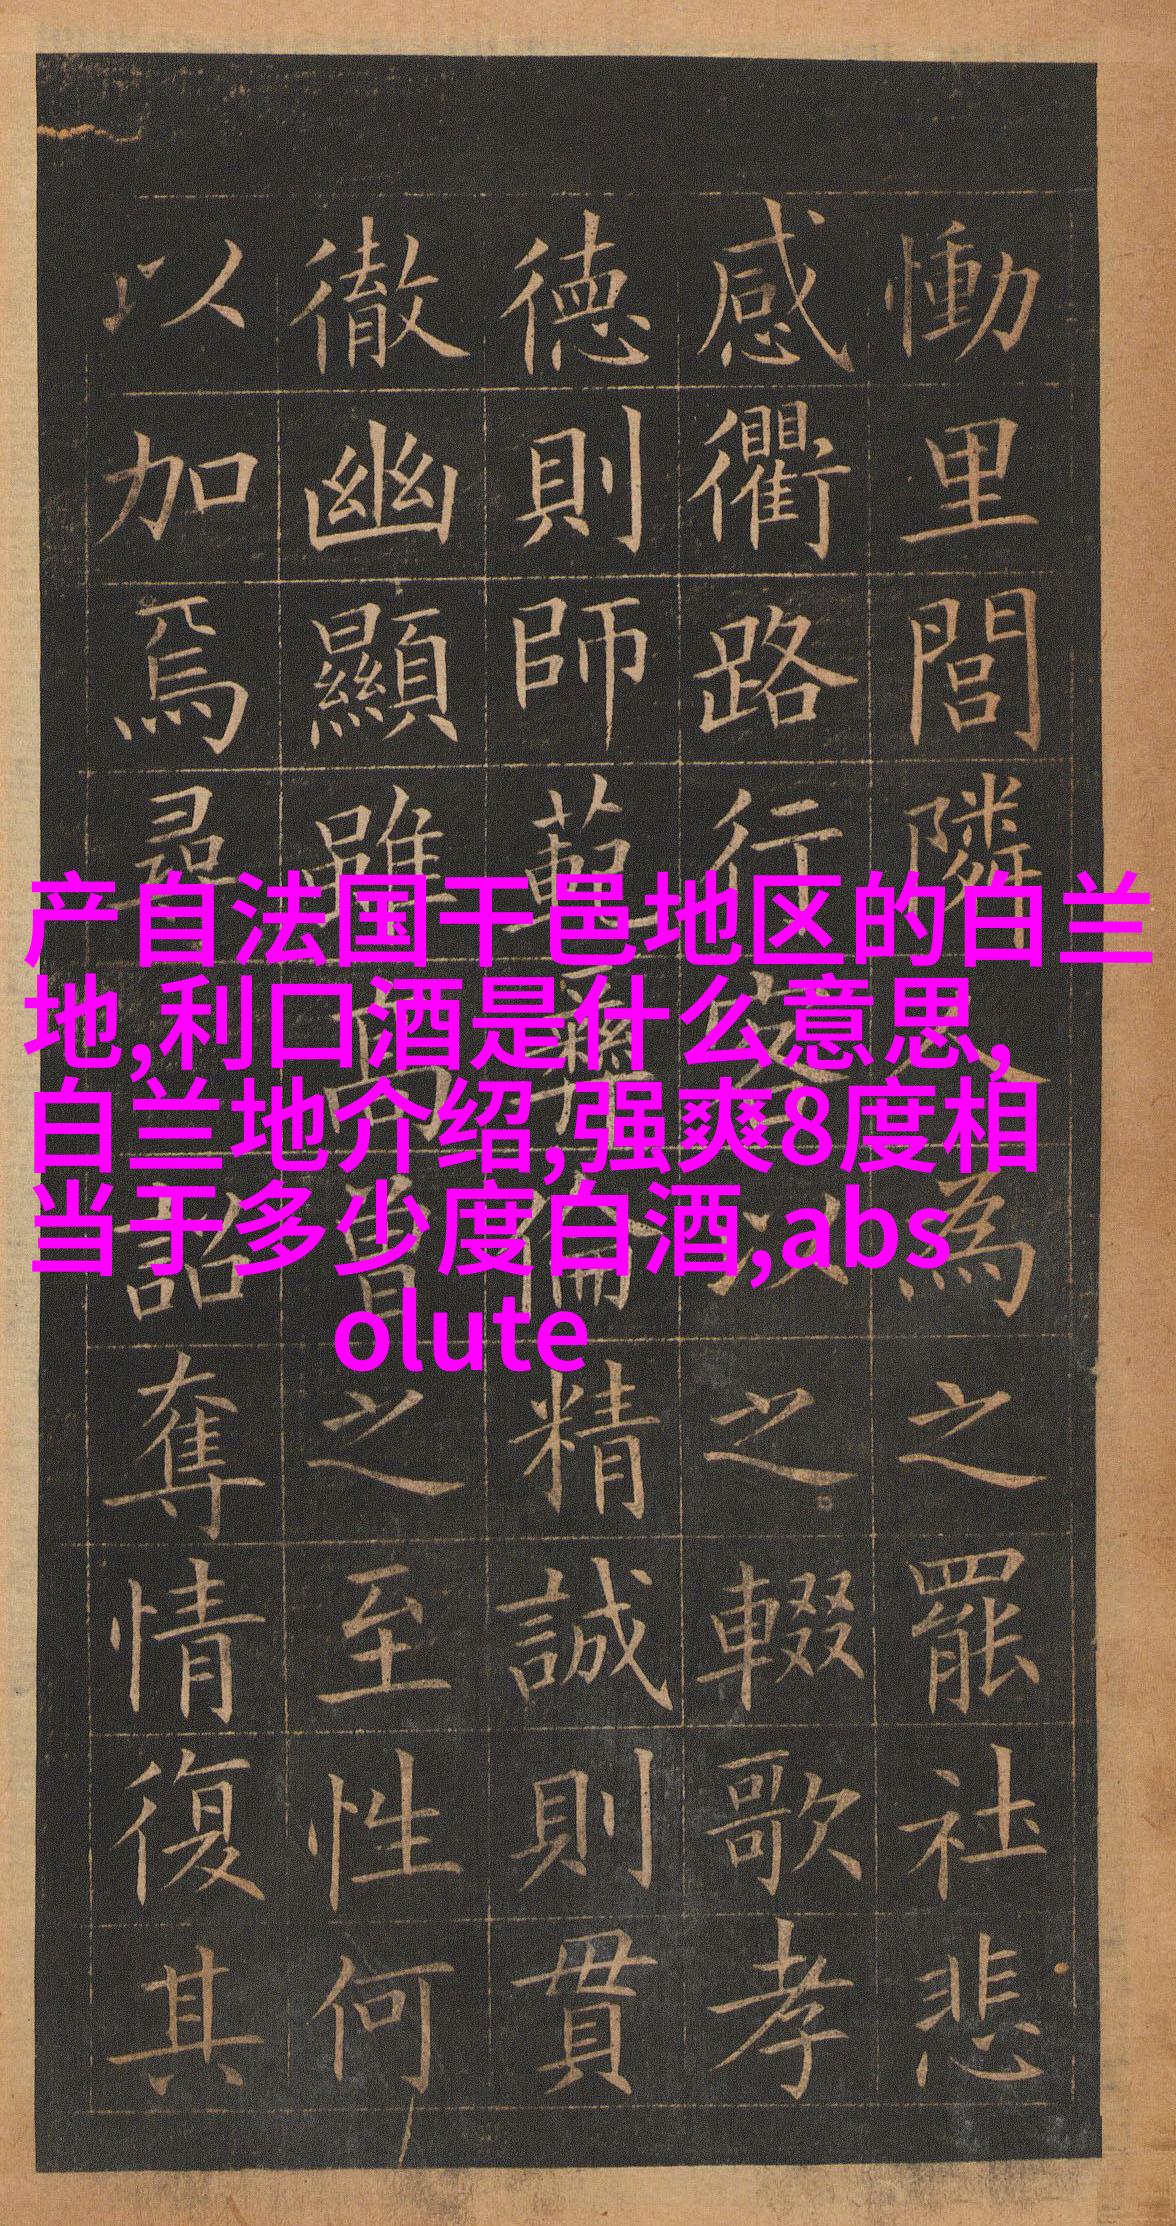 慟里閭隣人為之罷社悲
感衢路行客以之輟歌孝
德則師範彝倫精誠則貫
徹幽顯雖高曾之至性何
以加焉尋詔奪情復其
产自法国干邑地区的白兰
地,利口酒是什么意思,
白兰地介绍,强爽8度相
当于多少度白酒,abs
olute